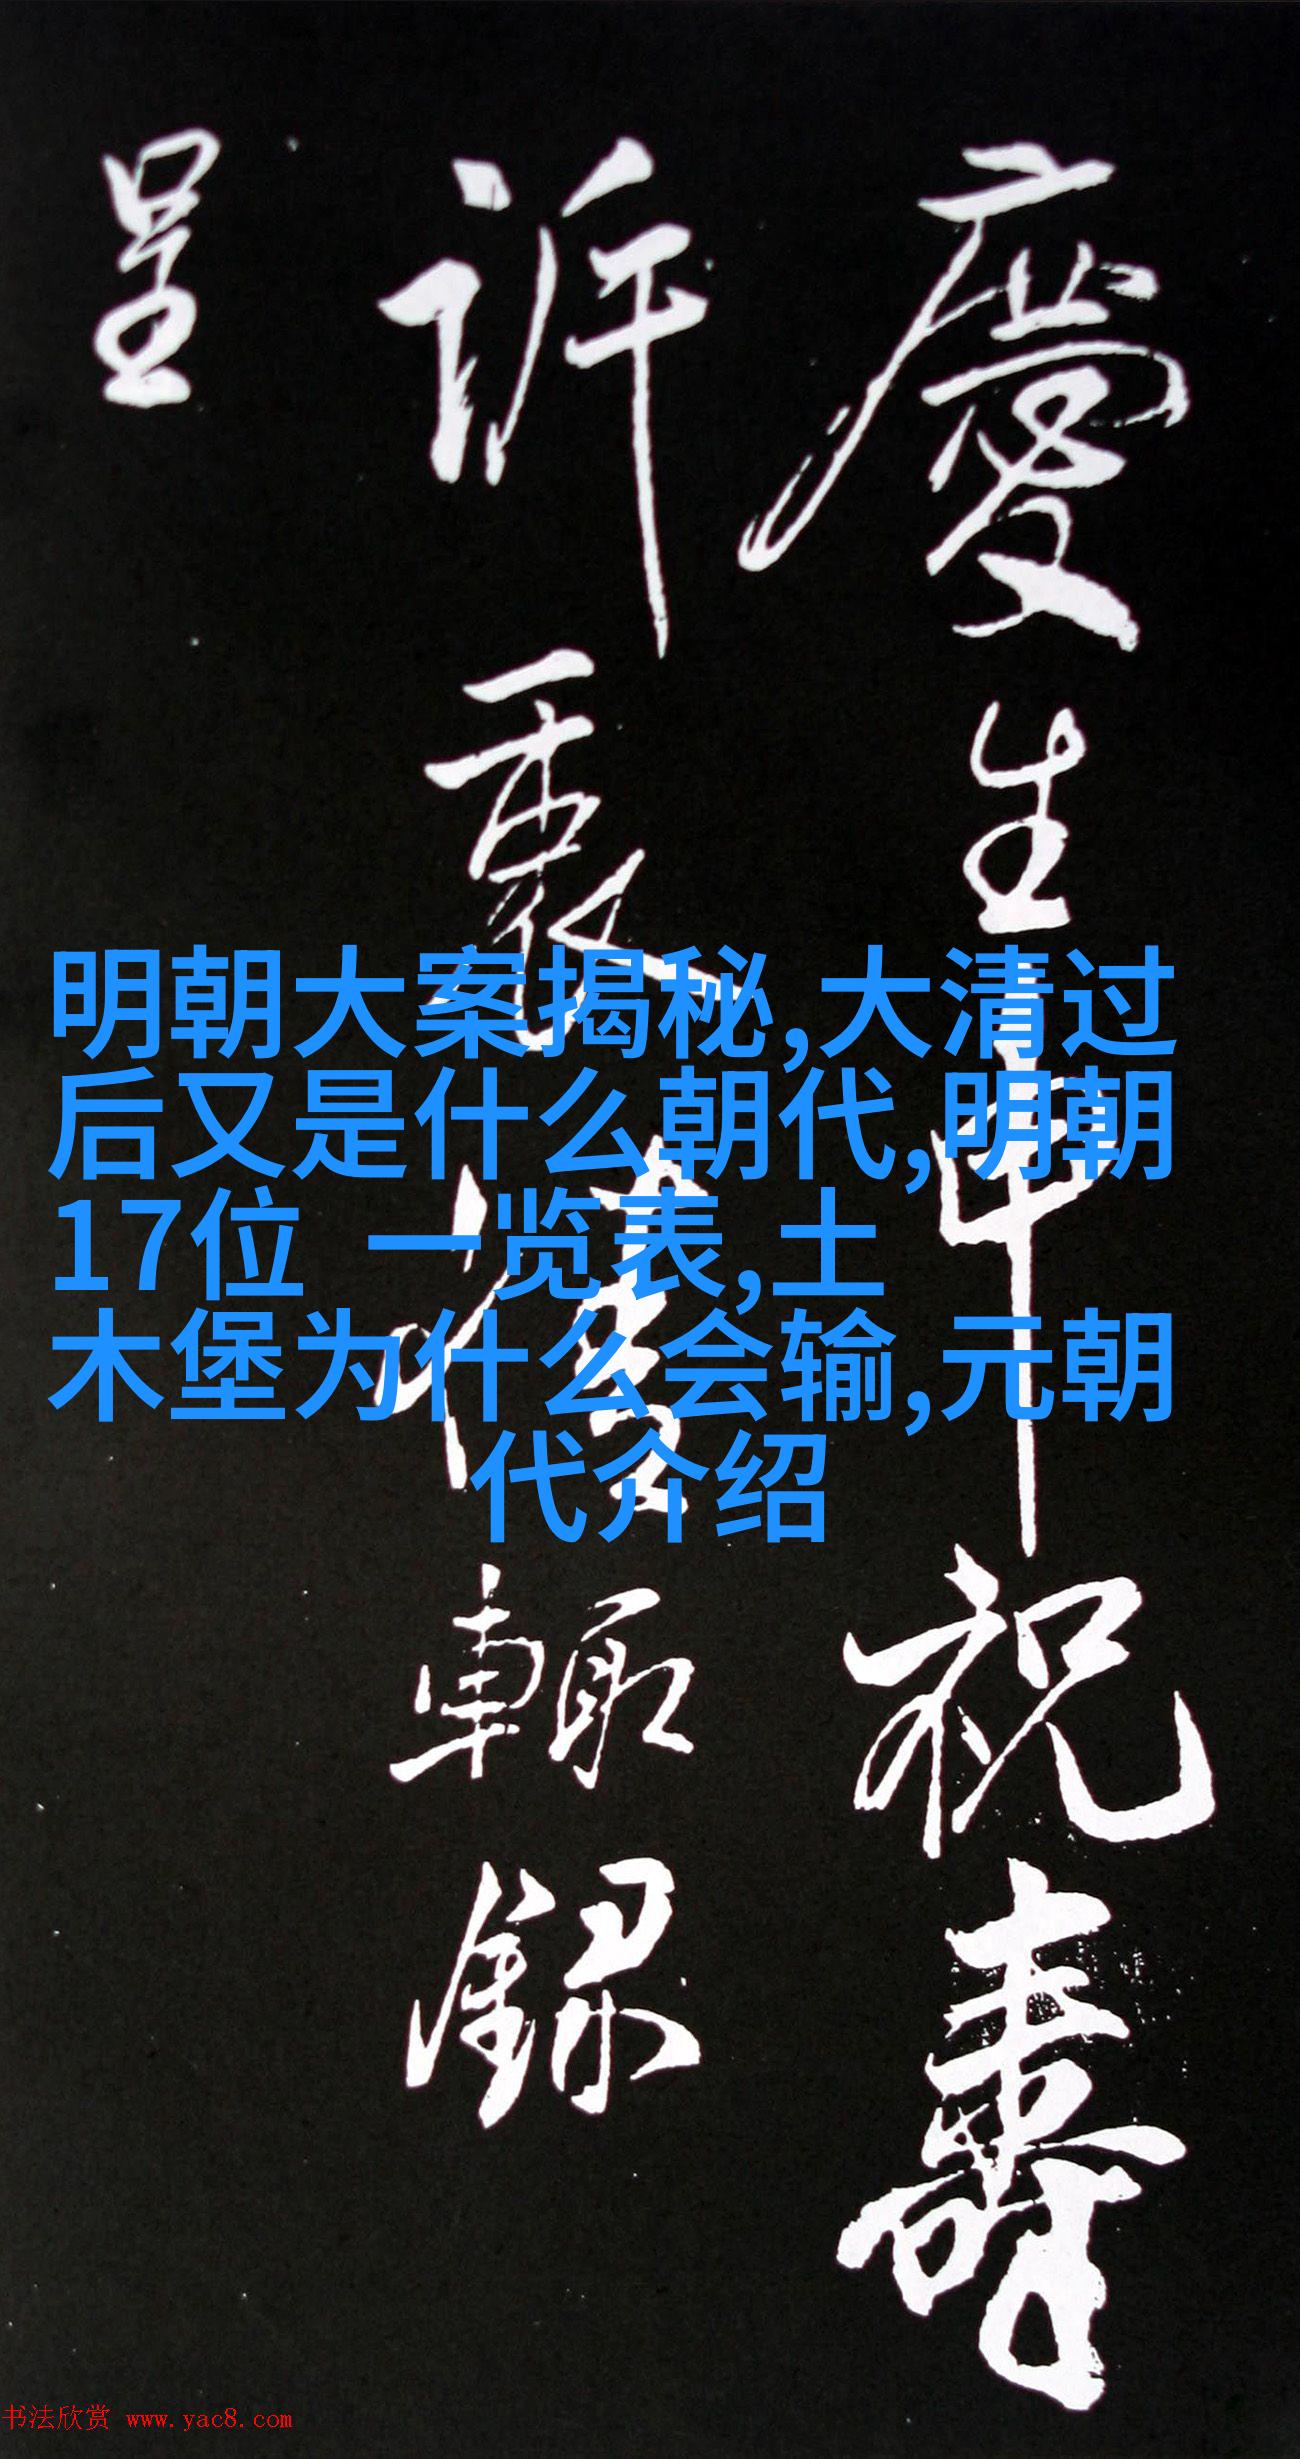 慶生申祝壽
訢裹懷輙録
呈
明朝大案揭秘,大清过
后又是什么朝代,明朝
17位 一览表,土
木堡为什么会输,元朝
代介绍
书法欣赏 www.yac8.com